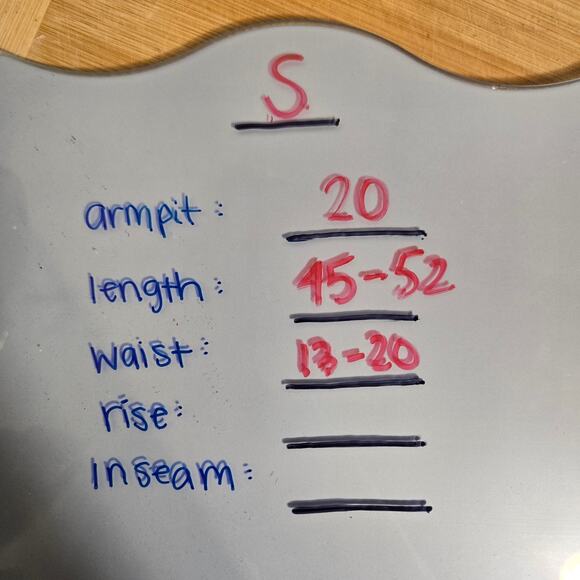 S
armpit: 20
length: 45-52
waist: 13-20
rise:
inseam: